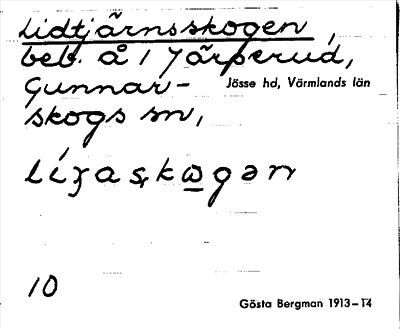 Lidtjärnsskogen,
beb. å 1/7 Järperud,
Gunnar-
Jösse hd, Värmlands län
skogs sn,
10
Gösta Bergman 1913–14